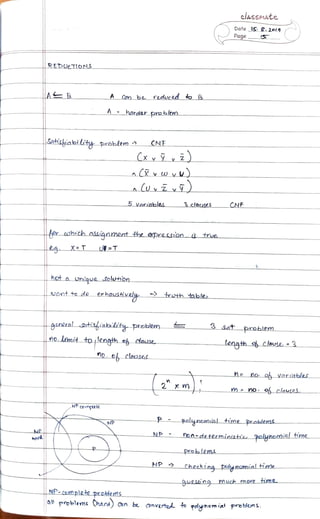 classmate
Date 15.8.2019
Page 15
REDUCTIONS
A ⇐ B A can be reduced to B
A - harder problem
Satisfiability problem → CNF
(x ∨ ȳ ∨ z̄)
∧ (x̄ ∨ w ∨ u)
∧ (u ∨ z̄ ∨ ȳ)
5 variables 3 clauses CNF
for which assignment the expression is true
eg. x=T u=T
not a unique solution
want to do exhaustively => truth table
general satisfiability problem ⇐ 3 sat problem
no limit to length of clause length of clause = 3
no. of clauses
n = no. of variables
(2ⁿ × m)
m = no. of clauses
NP complete
NP
NP hard
P
P - polynomial time problems
NP - non-deterministic polynomial time
problems
NP → checking polynomial time
guessing much more time
NP-complete problems
all problems (hard) can be converted to polynomial problems.